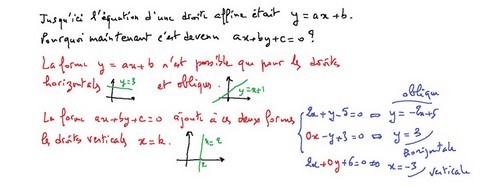 Jusqu'ici l'équation d'une droite affine était y = ax + b.
Pourquoi maintenant c'est devenu ax + by + c = 0 ?
La forme y = ax + b n'est possible que pour les droites
horizontales y=3 et obliques. y=x+1
La forme ax + by + c = 0 ajoute à ces deux formes
les droites verticales x = k.
x=2
2
oblique
2x + y - 5 = 0 ⇔ y = -2x + 5
0x - y + 3 = 0 ⇔ y = 3
horizontale
2x + 0y + 6 = 0 ⇔ x = -3
verticale